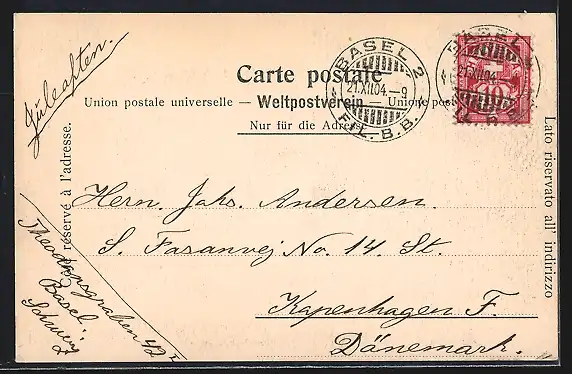 Juleaften.
Carte postale
Union postale universelle — Weltpostverein — Unione
Nur für die
Côté réservé à l'adresse.
Lato riservato all' indirizzo
BASEL 2
21.XII.04.–9
FIL.B.B.
BASEL
21.XII.04
10
Hern. Johs. Andersen.
S. Fasanvej No. 14. St.
Kapenhagen F.
Dänemark.
Theodorsgraben 42 I
Basel.
Schweiz